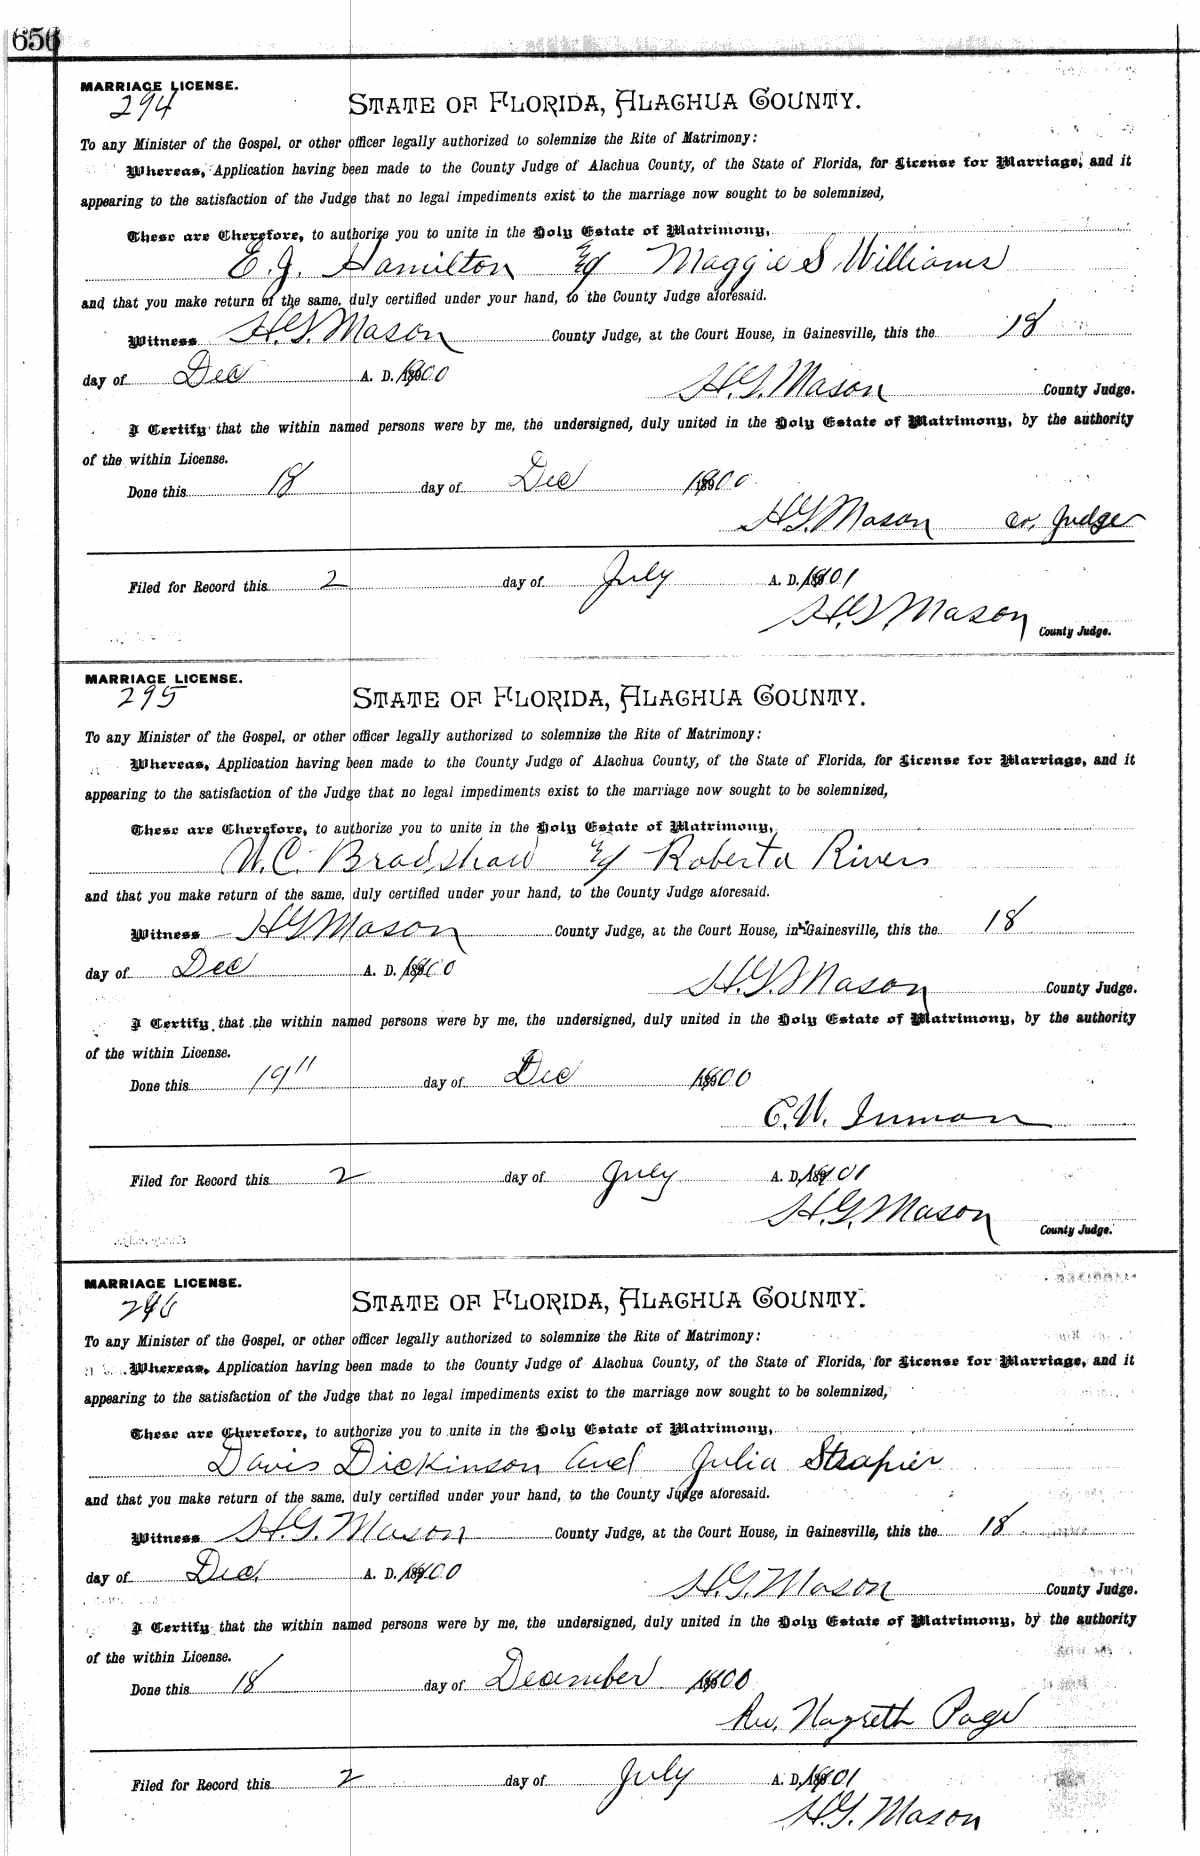 656
MARRIAGE LICENSE.
294
STATE OF FLORIDA, ALACHUA COUNTY.
To any Minister of the Gospel, or other officer legally authorized to solemnize the Rite of Matrimony:
Whereas, Application having been made to the County Judge of Alachua County, of the State of Florida, for License for Marriage, and it
appearing to the satisfaction of the Judge that no legal impediments exist to the marriage now sought to be solemnized,
These are Therefore, to authorize you to unite in the Holy Estate of Matrimony,
E. J. Hamilton & Maggie S Williams
and that you make return of the same, duly certified under your hand, to the County Judge aforesaid.
Witness H. G. Mason County Judge, at the Court House, in Gainesville, this the 18
day of Dec A. D. 1900
H. G. Mason County Judge.
I Certify that the within named persons were by me, the undersigned, duly united in the Holy Estate of Matrimony, by the authority
of the within License.
Done this 18 day of Dec 1900
H G Mason Co. Judge
Filed for Record this 2 day of July A. D. 1901
H. G. Mason
County Judge.
MARRIAGE LICENSE.
295
STATE OF FLORIDA, ALACHUA COUNTY.
To any Minister of the Gospel, or other officer legally authorized to solemnize the Rite of Matrimony:
Whereas, Application having been made to the County Judge of Alachua County, of the State of Florida, for License for Marriage, and it
appearing to the satisfaction of the Judge that no legal impediments exist to the marriage now sought to be solemnized,
These are Therefore, to authorize you to unite in the Holy Estate of Matrimony,
W. C. Bradshaw & Roberta Rivers
and that you make return of the same, duly certified under your hand, to the County Judge aforesaid.
Witness H G Mason County Judge, at the Court House, in Gainesville, this the 18
day of Dec A. D. 1900
H. G. Mason County Judge.
I Certify that the within named persons were by me, the undersigned, duly united in the Holy Estate of Matrimony, by the authority
of the within License.
Done this 19" day of Dec 1900
C. W. Inman
Filed for Record this 2 day of July A. D. 1901
H. G. Mason
County Judge.
MARRIAGE LICENSE.
296
STATE OF FLORIDA, ALACHUA COUNTY.
To any Minister of the Gospel, or other officer legally authorized to solemnize the Rite of Matrimony:
Whereas, Application having been made to the County Judge of Alachua County, of the State of Florida, for License for Marriage, and it
appearing to the satisfaction of the Judge that no legal impediments exist to the marriage now sought to be solemnized,
These are Therefore, to authorize you to unite in the Holy Estate of Matrimony,
Davis Dickinson and Julia Strapier
and that you make return of the same, duly certified under your hand, to the County Judge aforesaid.
Witness H. G. Mason County Judge, at the Court House, in Gainesville, this the 18
day of Dec. A. D. 1900
H. G. Mason County Judge.
I Certify that the within named persons were by me, the undersigned, duly united in the Holy Estate of Matrimony, by the authority
of the within License.
Done this 18 day of December 1900
Rev. Nazreth Page
Filed for Record this 2 day of July A. D. 1901
H. G. Mason